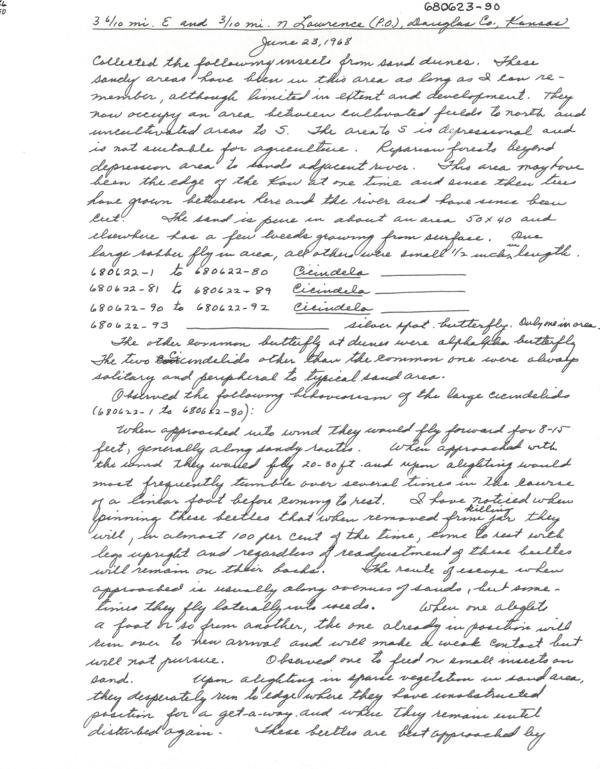 680623-90
3 6/10 mi. E and 3/10 mi. N Lawrence (P.O.), Douglas Co., Kansas
June 23, 1968
Collected the following insects from sand dunes. These
sandy areas have been in this area as long as I can re-
member, although limited in extent and development. They
now occupy an area between cultivated fields to north and
uncultivated areas to S. The area to S is depressional and
is not suitable for agriculture. Riparian forests beyond
depression area to sands adjacent river. This area may have
been the edge of the Kaw at one time and since then trees
have grown between here and the river and have since been
cut. The sand is pure in about an area 50 x 40 and
elsewhere has a few weeds growing from surface. One
large robber fly in area, all others were small 1/2 inch in length.
680622-1 to 680622-80 Cicindela
680622-81 to 680622-89 Cicindela
680622-90 to 680622-92 Cicindela
680622-93 silver spot butterfly. Only one in area.
The other common butterfly at dunes were alphalpha butterfly
The two cicindelids other than the common one were always
solitary and peripheral to typical sand area.
Observed the following behaviorism of the large cicindelids
(680622-1 to 680622-80):
When approached into wind they would fly forward for 8-15
feet, generally along sandy routes. When approached with
the wind they would fly 20-30 ft and upon alighting would
most frequently tumble over several times in the course
of a linear foot before coming to rest. I have noticed when
pinning these beetles that when removed from killing jar they
will, in almost 100 per cent of the time, come to rest with
legs upright and regardless of readjustment of these beetles
will remain on their backs. The route of escape when
approached is usually along avenues of sands, but some-
times they fly laterally into weeds. When one alights
a foot or so from another, the one already in position will
run over to new arrival and will make a weak contact but
will not pursue. Observed one to feed on small insects on
sand. Upon alighting in sparse vegetation in sand area,
they desperately run to edge where they have unobstructed
position for a get-a-way and where they remain until
disturbed again. These beetles are best approached by